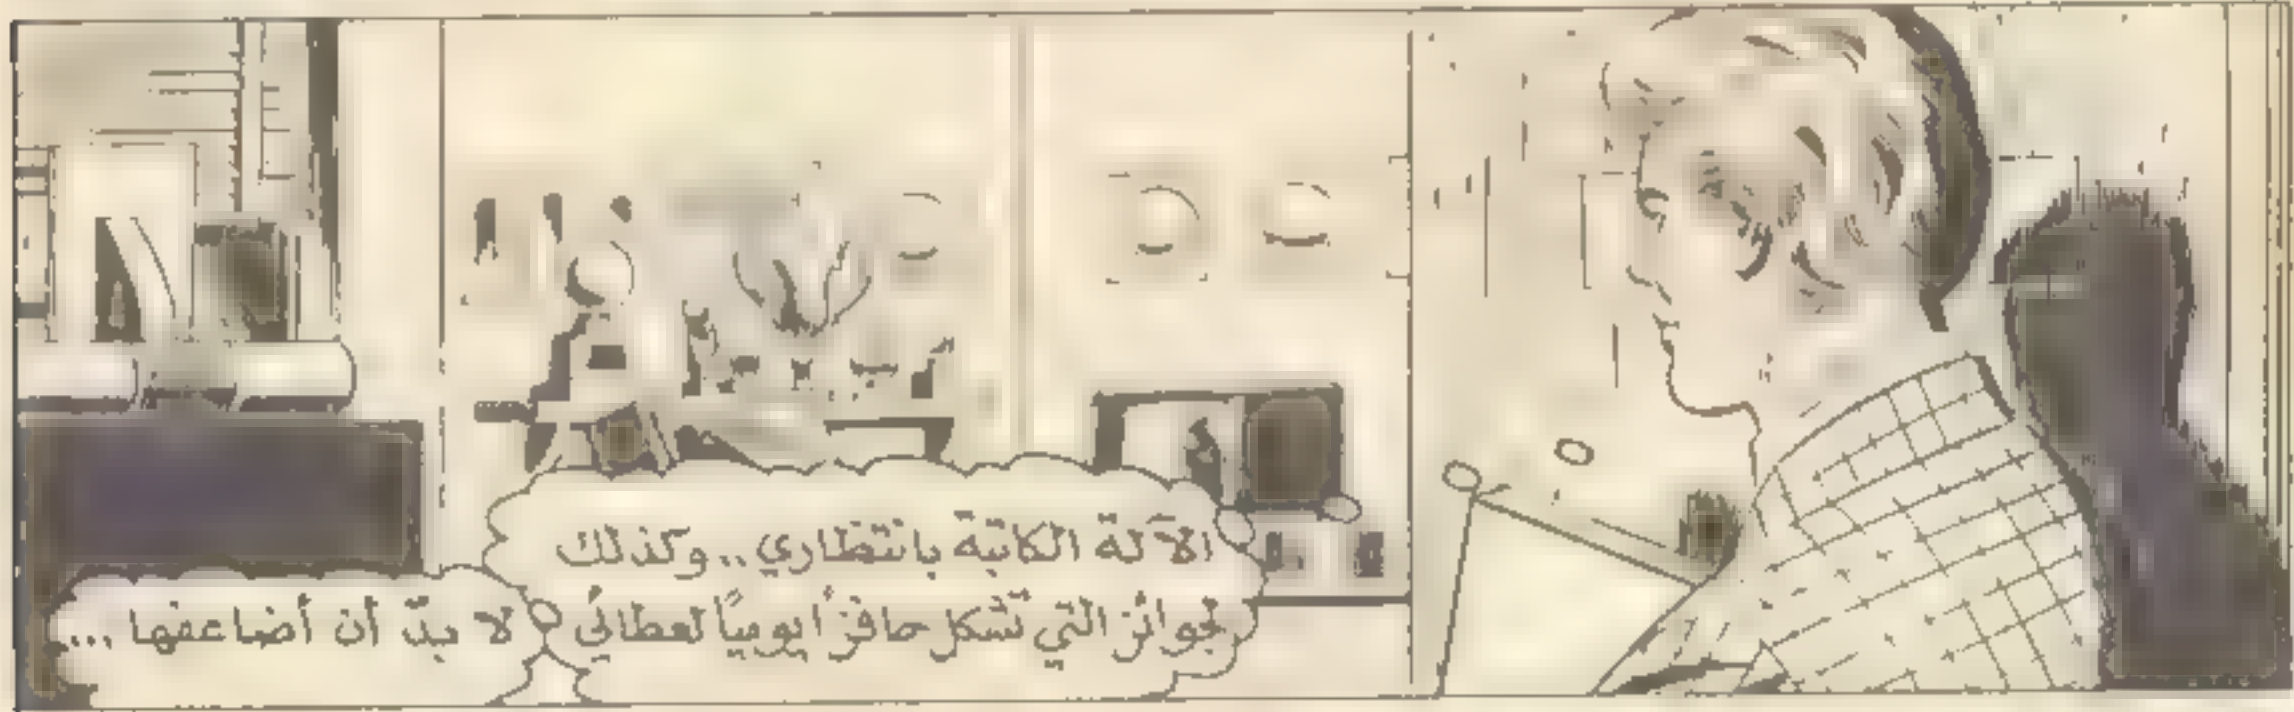 الآلة الكاتبة بانتظاري .. وكذلك
لجوائز التي تشكل حافزاً يومياً لعطائي
لا بدّ أن أضاعفها ...